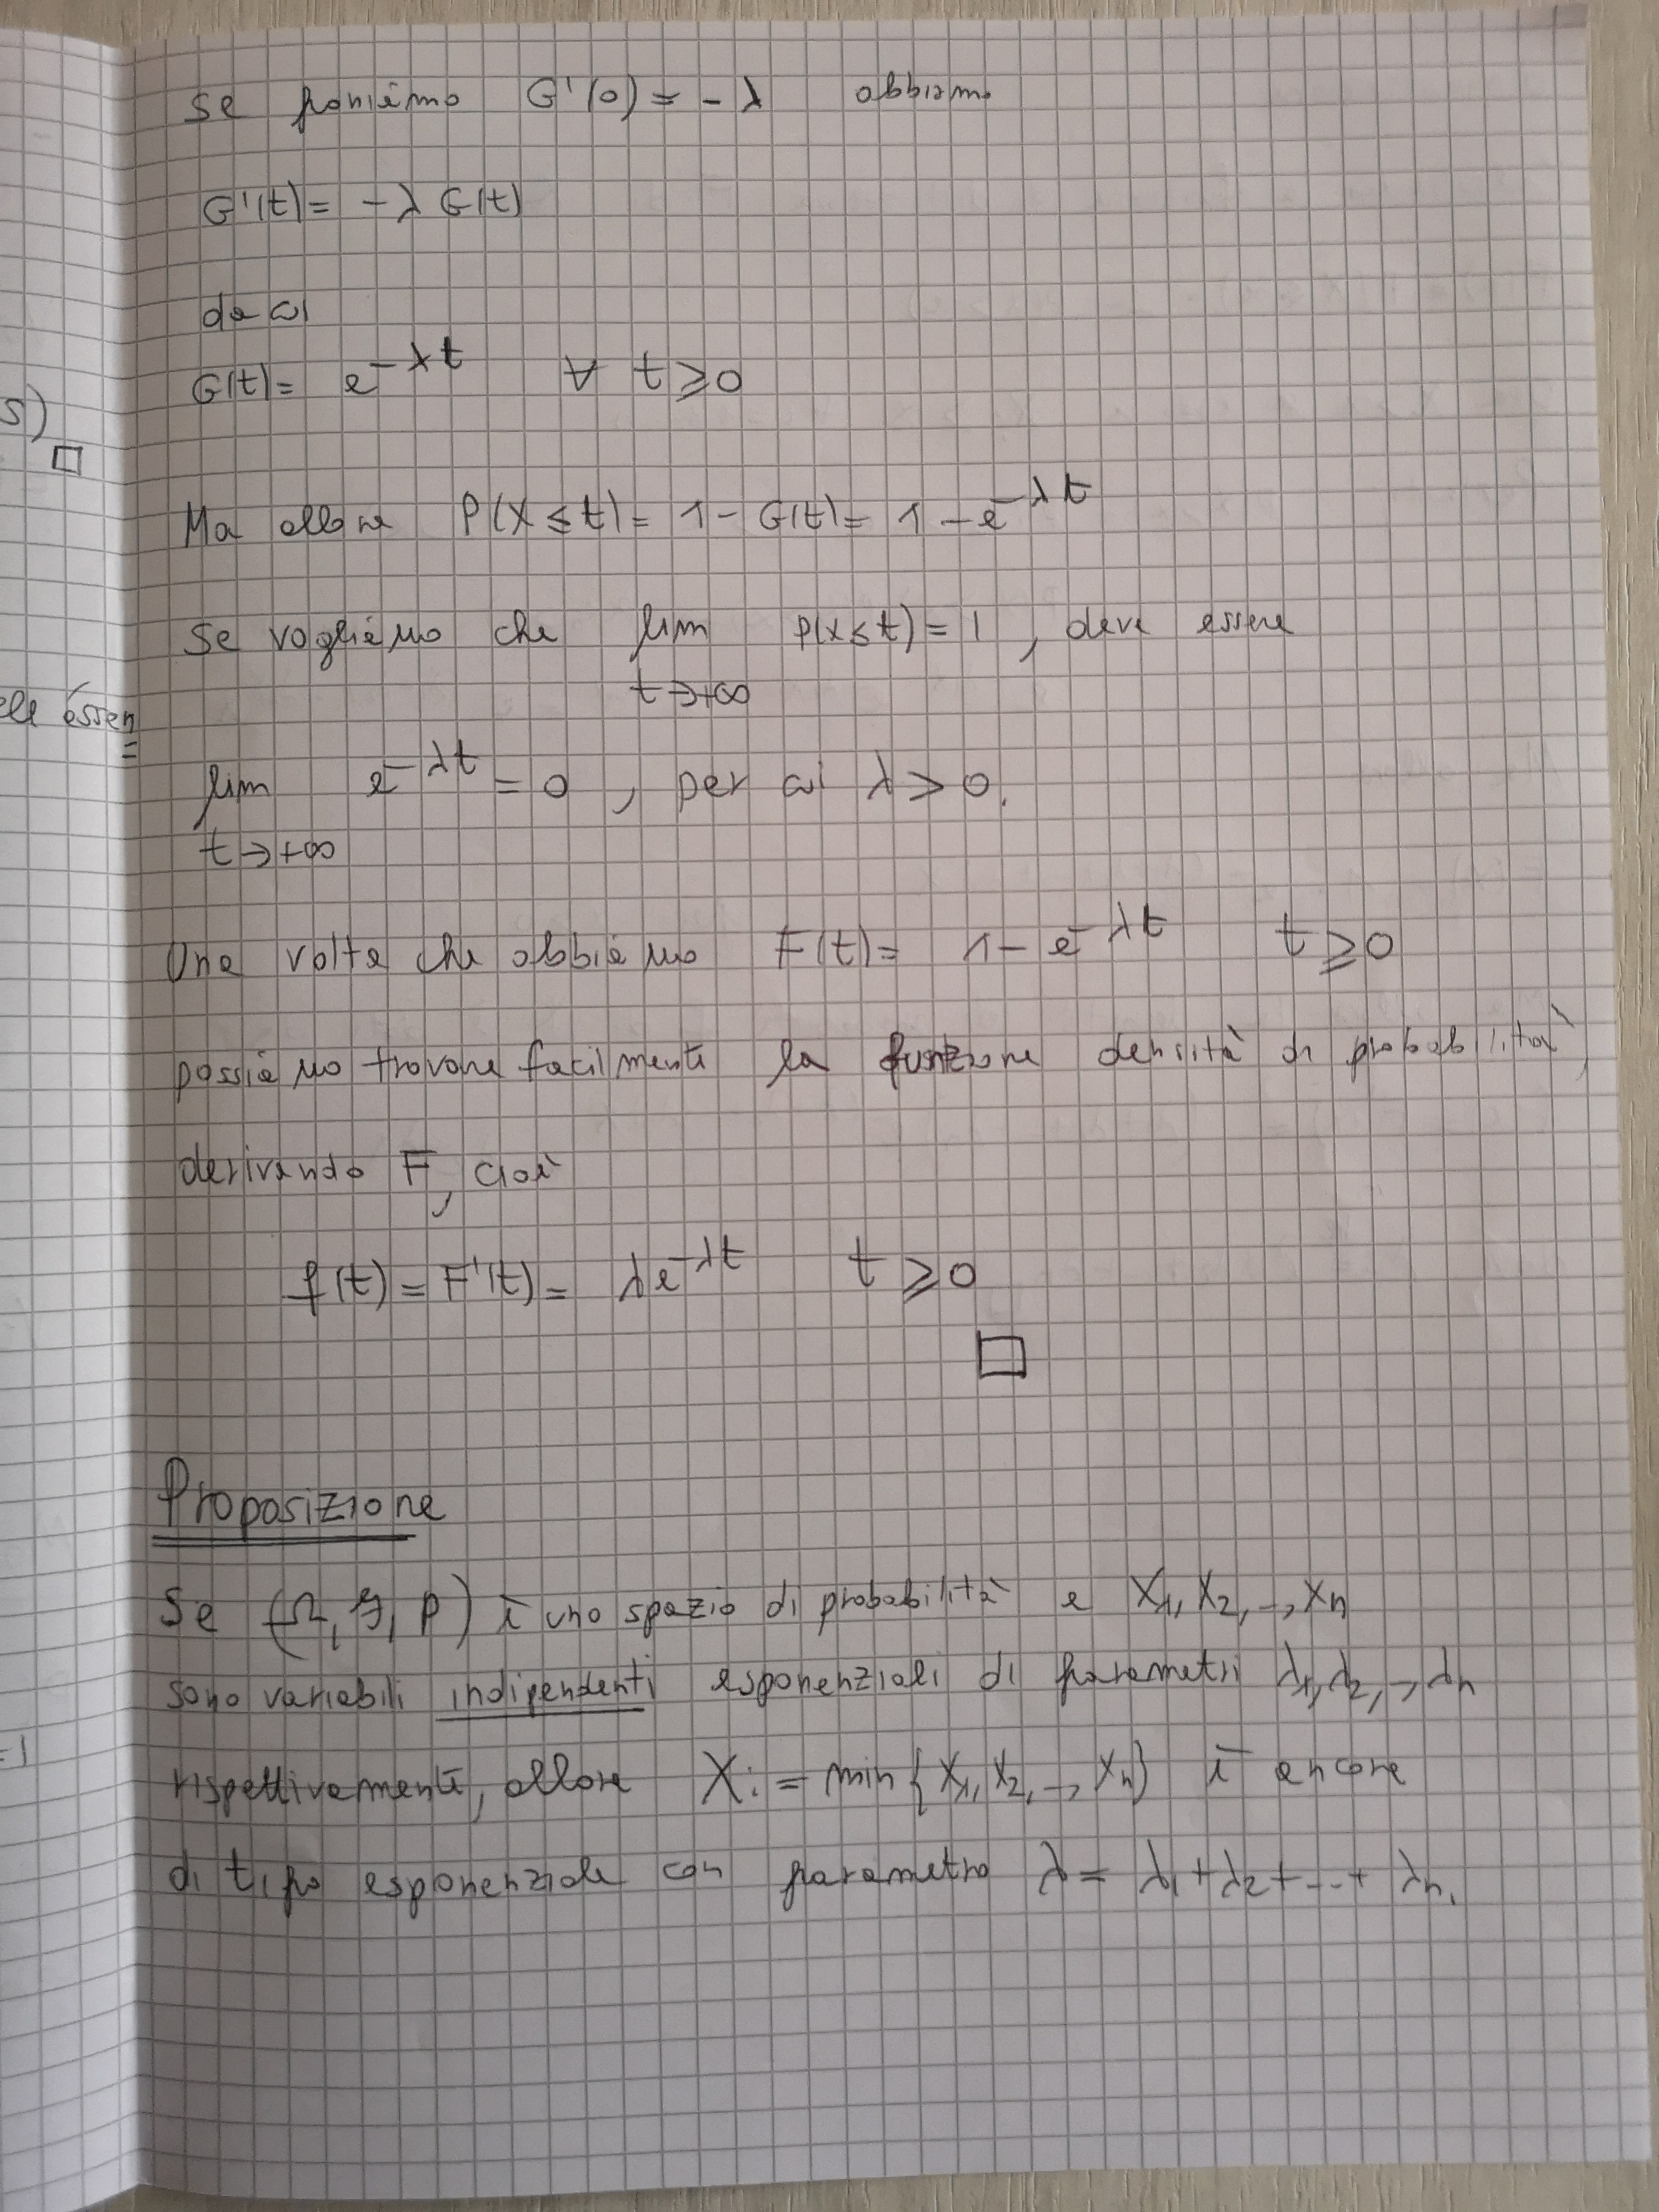 Se poniamo G'(0) = - λ abbiamo
G'(t) = - λ G(t)
da cui
G(t) = e^{-λt} ∀ t ⩾ 0
s)
□
Ma allora P(X ≤ t) = 1 - G(t) = 1 - e^{-λt}
Se vogliamo che lim P(X ≤ t) = 1, deve essere
t → +∞
lim e^{-λt} = 0, per cui λ > 0.
t → +∞
Una volta che abbiamo F(t) = 1 - e^{-λt} t ⩾ 0
possiamo trovare facilmente la funzione densità di probabilità,
derivando F, cioè
f(t) = F'(t) = λe^{-λt} t ⩾ 0
□
Proposizione
Se (Ω, F, P) è uno spazio di probabilità e X₁, X₂, -, Xn
sono variabili indipendenti esponenziali di parametri λ₁, λ₂, -, λn
=1
rispettivamente, allora X := min{X₁, X₂, -, Xn} è ancora
di tipo esponenziale con parametro λ = λ₁ + λ₂ + --- + λn.